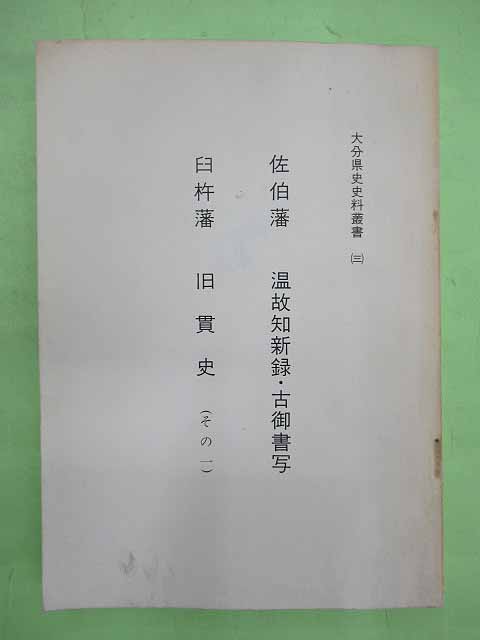 大分県史史料叢書 ㈢
佐伯藩 温故知新録・古御書写
臼杵藩 旧貫史 (その一)